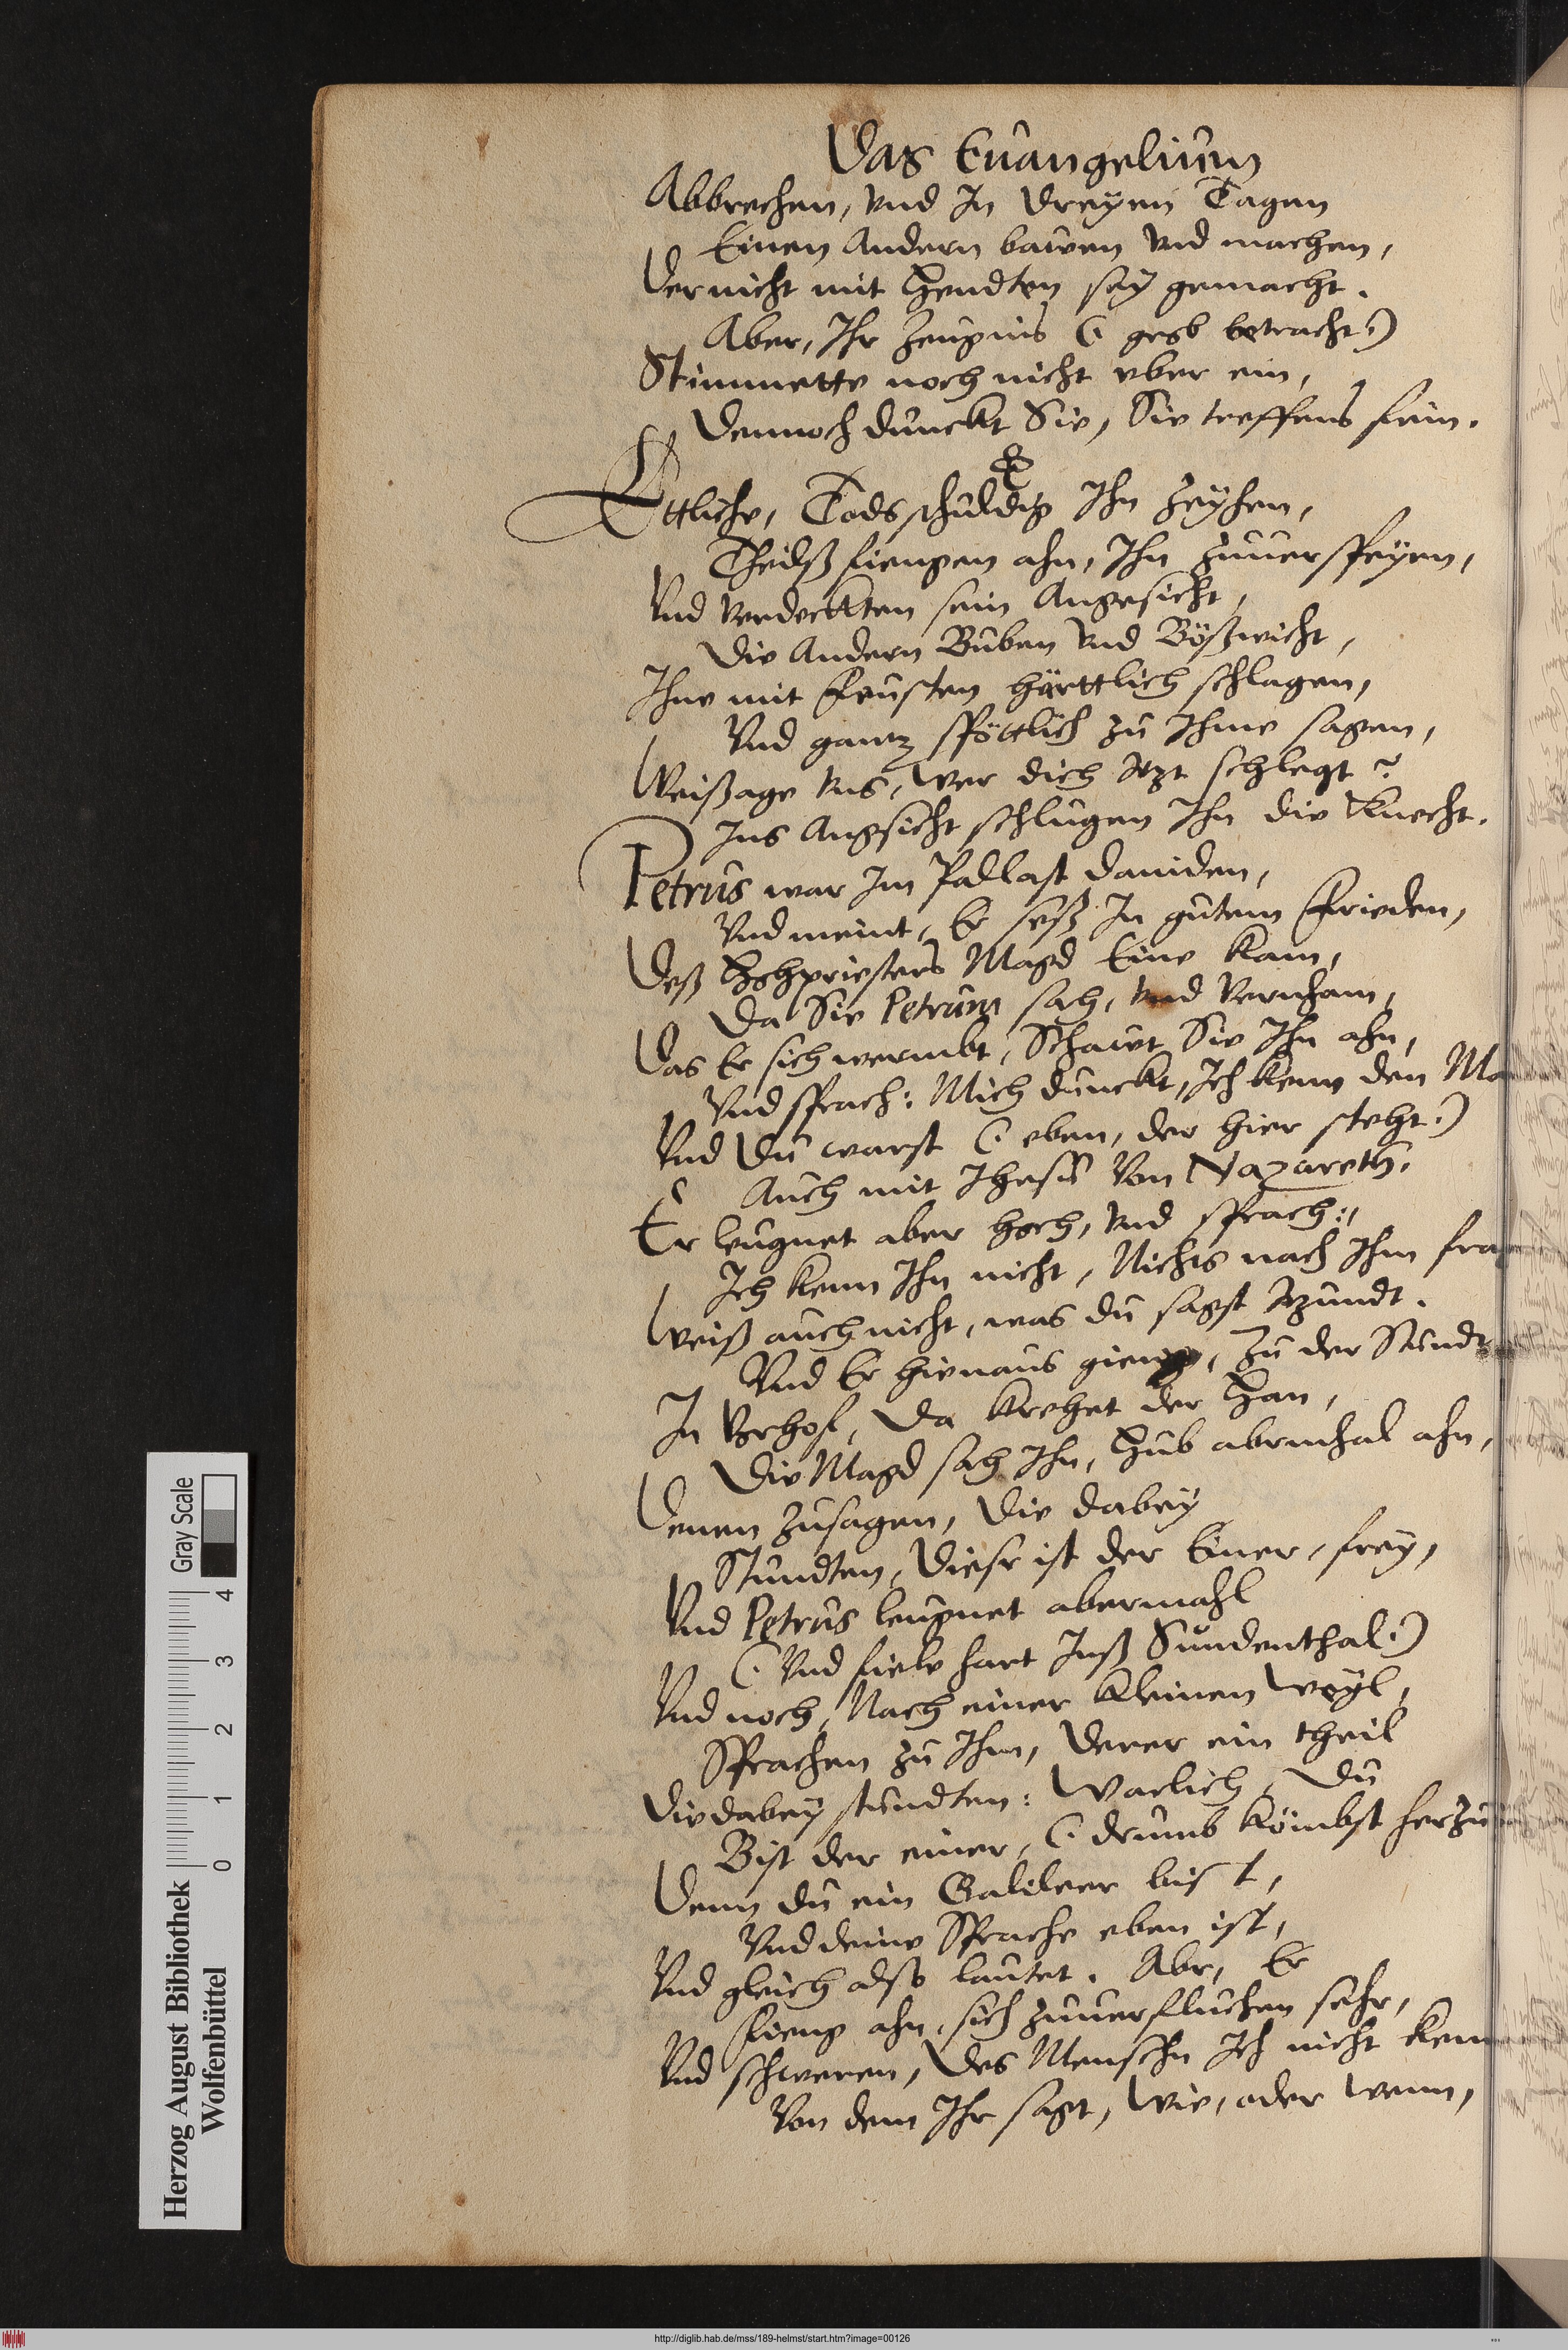 Das Euangelium
Abbrechen, vnd In dreyen Tagen
Einen Andern bawen vnd machen,
Der nicht mit Hendten sey gemacht.
Aber, Ihr Zeugnis (: gros betracht:)
Stimmette noch nicht vber ein,
Dennoch dunckt Sie, Sie treffens fein.
Ettliche, Tods schuldig Ihn Zeyhen,
Theilß fiengen ahn, Ihn Zuuerspeyen,
Vnd verdecktten sein Angesicht,
Die Andern Buben vnd Bößwicht,
Ihne mit Feusten härttlich schlagen,
Vnd gantz spöttlich zu Ihme sagen,
Weißage vns, wer dich itzt schlegt?
Ins Angsicht schlugen Ihn die Knecht.
Petrus war Im Pallast daniden,
Vnd meint, Er seß In gutem Frieden,
Deß Hohpriesters Magd Eine kam,
Da Sie Petrum sah, vnd vernham,
Das Er sich wermbt, Schawt Sie Ihn ahn,
Vnd sprach: Mich dunckt, Ich kenn den Ma
Vnd Du warst (: eben, der hier steht:)
Auch mit Ihesu von Nazareth.
Er leugnet aber hoch, vnd sprach:,
Ich kenn Ihn nicht, Nichts nach Ihm frag
Weiß auch nicht, was du sagst itzundt.
Vnd Er hienaus gieng, Zu der Stundt
In Vorhof, Da krehet der Han,
Die Magd sah Ihn, Hub abermhal ahn,
Denen Zusagen, die dabey
Stundten, Dieser ist der Einer, frey,
Vnd Petrus leugnet abermahl
(: Vnd fiele hart Inß Sundenthal:)
Vnd noch, Nach einer kleinen weyl,
Sprachen zu Ihm, Derer ein theil
Die dabey stundten: Warlich, Du
Bist der einer, (: drumb kömbst herzu
Denn du ein Galileer bist,
Vnd deine Sprache eben ist,
Vnd gleich also lautet. Aber, Er
Fieng ahn, sich Zuuerfluchen sehr,
Vnd schweren, Des Menschn Ich nicht kenn
Von dem Ihr sagt, Wie, oder wenn,
Gray Scale
0 1 2 3 4
Herzog August Bibliothek
Wolfenbüttel
http://diglib.hab.de/mss/189-helmst/start.htm?image=00126